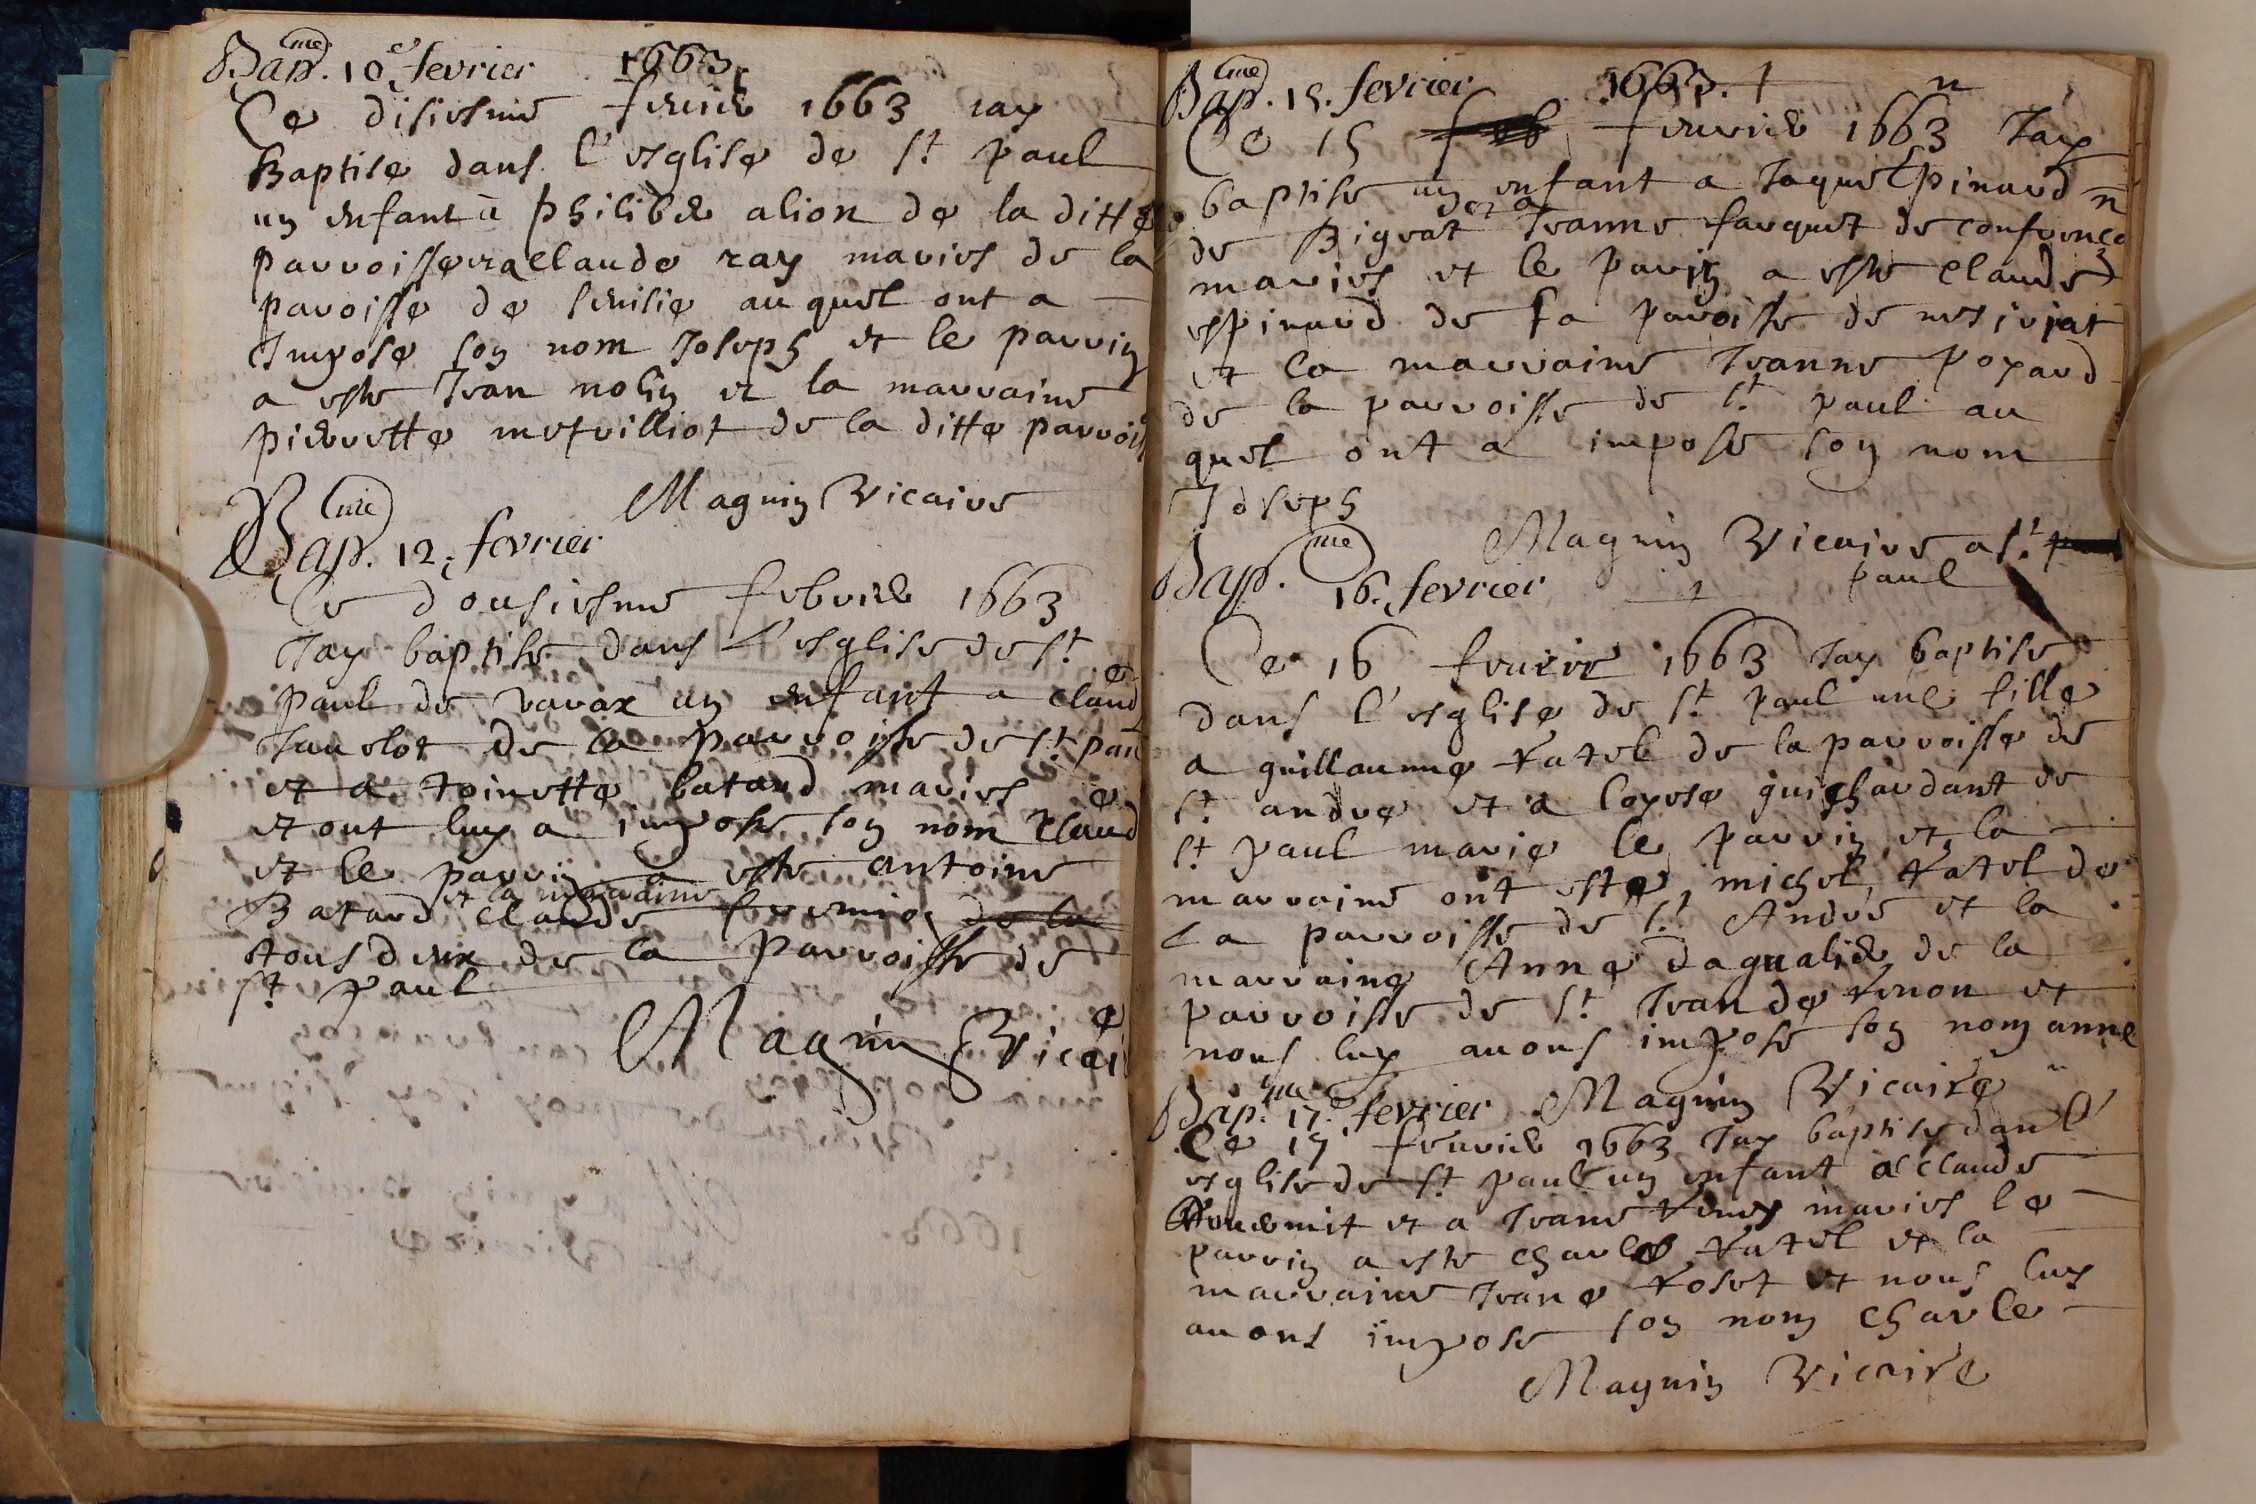 Bap.me 10e fevrier 1663.
Ce disiesme feurier 1663 iay
Baptise dans l'esglise de st paul
un enfant a philiber alion de la ditte
parroisse et a claude ray maries de la
paroisse de seuisie au quel ont a
Impose son nom Joseph et le parrin
a este Jean nolin et la marraine
pierrette metrilliot de la ditte parroiss
Magnin Vicaire
Bap.me 12. fevrier
Ce dousiesme febvrier 1663
Jay baptise dans L'esglise de st
paul de varax un enfant a claude
de la parroisse de st. paul
et a toinette batard maries
et ont luy a impose son nom claude
et le parrin a este antoine
Batard et la marraine claude de la
tous deux de la parroisse de
st paul
Magnin Vicaire
Bap.me 15. fevrier 1663.
Ce 15 feurier 1663 Jay
baptise un enfant a Jaque Spinard
de Bigrat et a Jeanne fauquet de
maries et le parrin a este claude
espinard de sa paroisse de
et la marraine Jeanne poyard
de la parroisse de st. paul au
quel ont a impose son nom
Joseph
Magnin Vicaire a st.
paul
Bap.me 16. fevrier
Ce 16 feurier 1663 Jay baptise
dans l'esglise de st. paul une fille
a guillaume vatel de la parroisse de
st. andre et a loyese guichardant de
st paul marie le parrin et la
marraine ont este michel vatel de
La parroisse de st. André et la
marraine Anne dagualier de la
parroisse de st. Jean de et
nous luy auons impose son nom anne
Magnin Vicaire
Bap.me 17. fevrier
Ce 17 feurier 1663 Jay baptise dans l'
esglise de st paul un enfant a claude
et a Jeane maries le
parrin a este charle vatel et la
marraine Jeane voset et nous luy
auons impose son nom charle
Magnin Vicaire